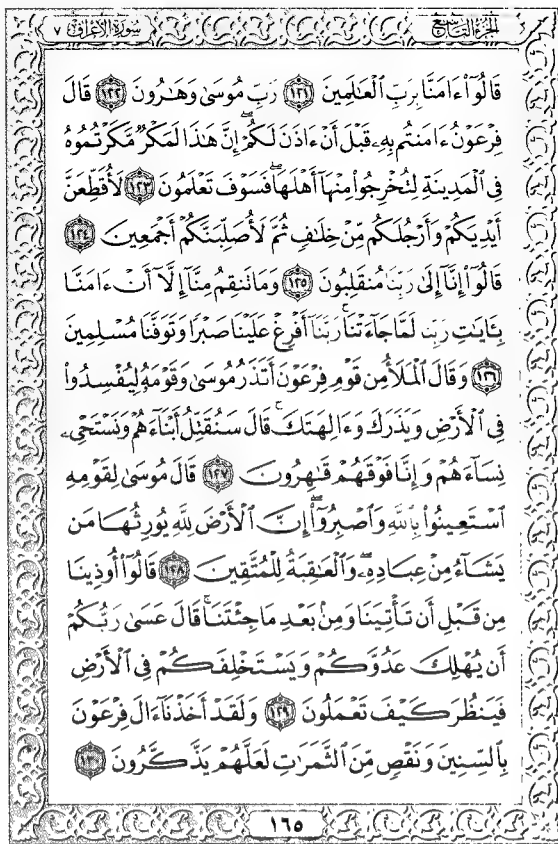 سورة الأعراف ٧
الجزء التاسع
قَالُوٓا۟ ءَامَنَّا بِرَبِّ ٱلْعَٰلَمِينَ ١٢١ رَبِّ مُوسَىٰ وَهَٰرُونَ ١٢٢ قَالَ
فِرْعَوْنُ ءَامَنتُم بِهِۦ قَبْلَ أَنْ ءَاذَنَ لَكُمْ ۖ إِنَّ هَٰذَا لَمَكْرٌ مَّكَرْتُمُوهُ
فِى ٱلْمَدِينَةِ لِتُخْرِجُوا۟ مِنْهَآ أَهْلَهَا ۖ فَسَوْفَ تَعْلَمُونَ ١٢٣ لَأُقَطِّعَنَّ
أَيْدِيَكُمْ وَأَرْجُلَكُم مِّنْ خِلَٰفٍ ثُمَّ لَأُصَلِّبَنَّكُمْ أَجْمَعِينَ ١٢٤
قَالُوٓا۟ إِنَّآ إِلَىٰ رَبِّنَا مُنقَلِبُونَ ١٢٥ وَمَا تَنقِمُ مِنَّآ إِلَّآ أَنْ ءَامَنَّا
بِـَٔايَٰتِ رَبِّنَا لَمَّا جَآءَتْنَا ۚ رَبَّنَآ أَفْرِغْ عَلَيْنَا صَبْرًا وَتَوَفَّنَا مُسْلِمِينَ
١٢٦ وَقَالَ ٱلْمَلَأُ مِن قَوْمِ فِرْعَوْنَ أَتَذَرُ مُوسَىٰ وَقَوْمَهُۥ لِيُفْسِدُوا۟
فِى ٱلْأَرْضِ وَيَذَرَكَ وَءَالِهَتَكَ ۚ قَالَ سَنُقَتِّلُ أَبْنَآءَهُمْ وَنَسْتَحْىِۦ
نِسَآءَهُمْ وَإِنَّا فَوْقَهُمْ قَٰهِرُونَ ١٢٧ قَالَ مُوسَىٰ لِقَوْمِهِ
ٱسْتَعِينُوا۟ بِٱللَّهِ وَٱصْبِرُوٓا۟ ۖ إِنَّ ٱلْأَرْضَ لِلَّهِ يُورِثُهَا مَن
يَشَآءُ مِنْ عِبَادِهِۦ ۖ وَٱلْعَٰقِبَةُ لِلْمُتَّقِينَ ١٢٨ قَالُوٓا۟ أُوذِينَا
مِن قَبْلِ أَن تَأْتِيَنَا وَمِنۢ بَعْدِ مَا جِئْتَنَا ۚ قَالَ عَسَىٰ رَبُّكُمْ
أَن يُهْلِكَ عَدُوَّكُمْ وَيَسْتَخْلِفَكُمْ فِى ٱلْأَرْضِ
فَيَنظُرَ كَيْفَ تَعْمَلُونَ ١٢٩ وَلَقَدْ أَخَذْنَآ ءَالَ فِرْعَوْنَ
بِٱلسِّنِينَ وَنَقْصٍ مِّنَ ٱلثَّمَرَٰتِ لَعَلَّهُمْ يَذَّكَّرُونَ ١٣٠
١٦٥